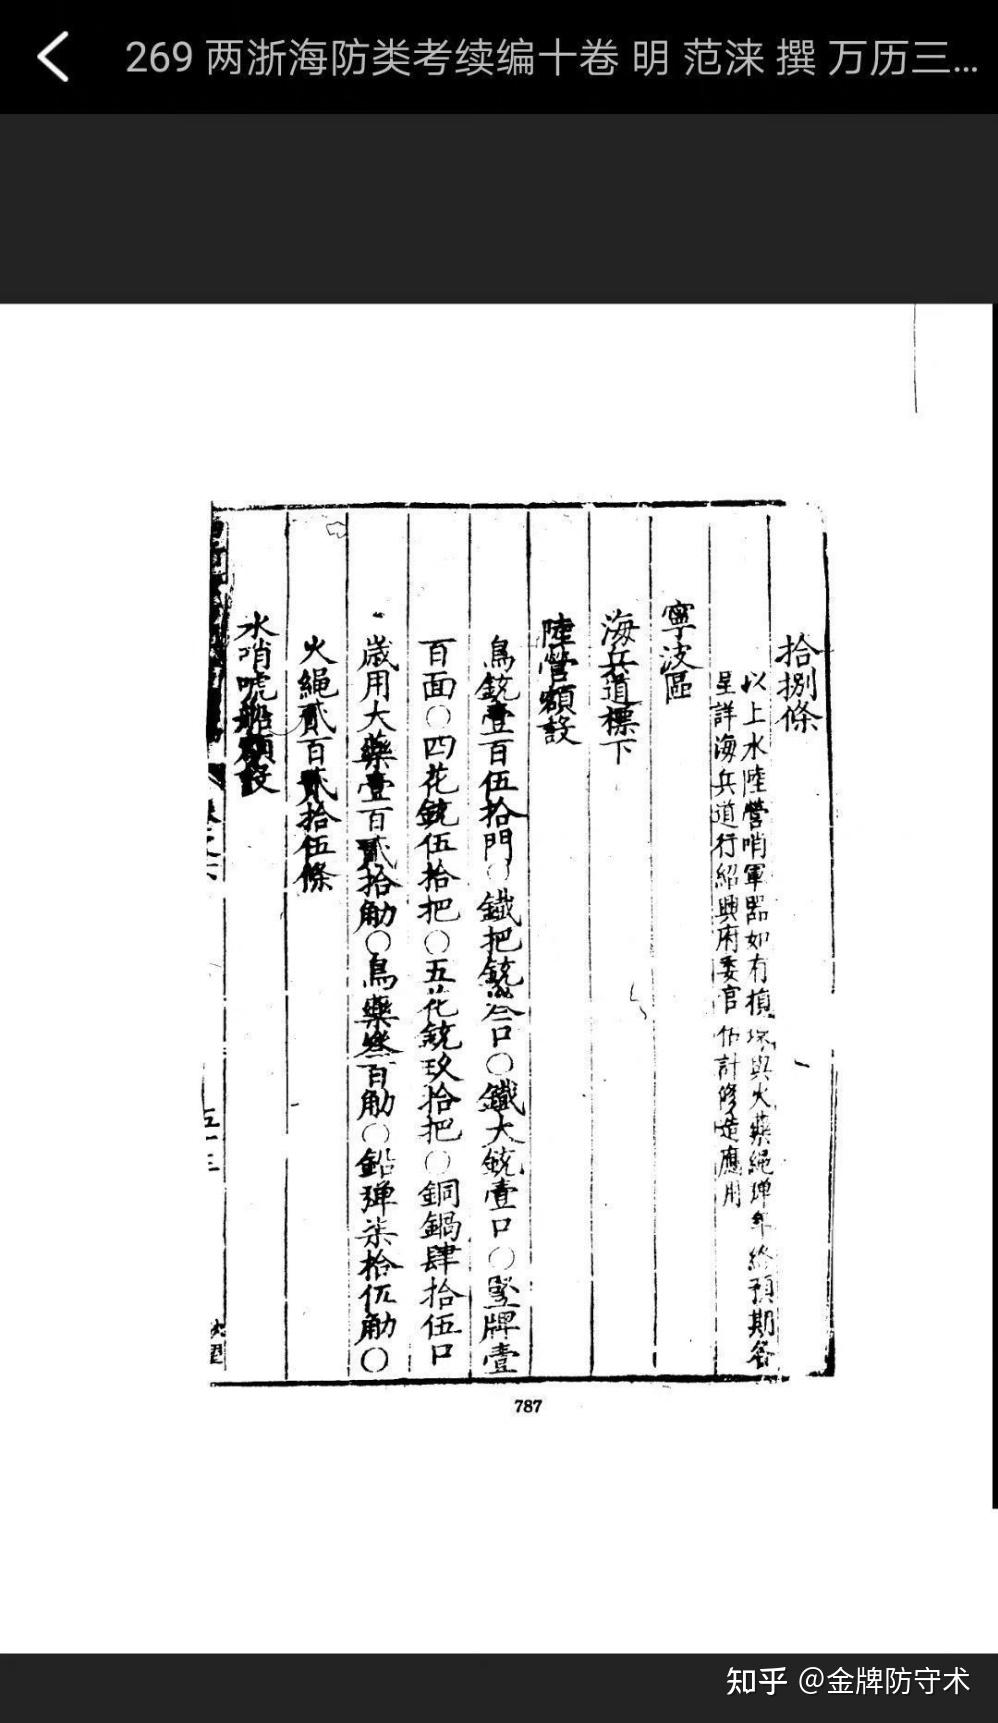 269 两浙海防类考续编十卷 明 范涞 撰 万历三...
拾捌條
以上水陸營哨軍器如有損壞與火藥繩彈年終預期各
呈詳海兵道行紹興府委官估計修造應用
寧波區
海兵道標下
陸營額設
鳥銃壹百伍拾門○鐵把銃叁口○鐵大銃壹口○竪牌壹
百面○四花銃伍拾把○五花銃玖拾把○銅鍋肆拾伍口
歲用大藥壹百貳拾觔○鳥藥叁百觔○鉛彈柒拾伍觔○
火繩貳百貳拾伍條
水哨唬船額設
卷之六
五十三
787
知乎 @金牌防守术